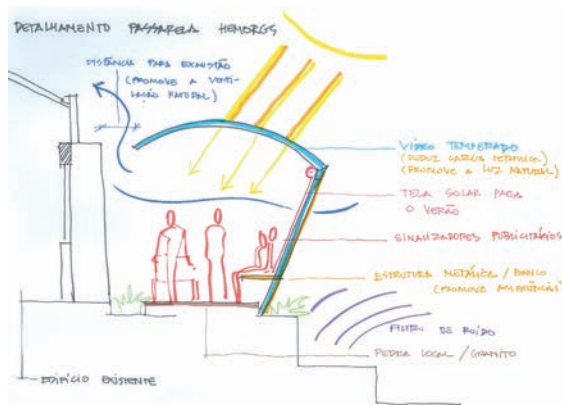 DETALHAMENTO PASSARELA HEMORGS
DISTÂNCIA PARA EXAUSTÃO
(PROMOVE A VENTI-
LAÇÃO NATURAL)
VIDRO TEMPERADO
(REDUZ CARGA TÉRMICA)
(PROMOVE A LUZ NATURAL)
TELA SOLAR PARA
O VERÃO
SINALIZADORES PUBLICITÁRIOS
ESTRUTURA METÁLICA / BANCO
(PROMOVE
FILTRO DE RUÍDO
PEDRA LOCAL / GRANITO
EDIFÍCIO EXISTENTE